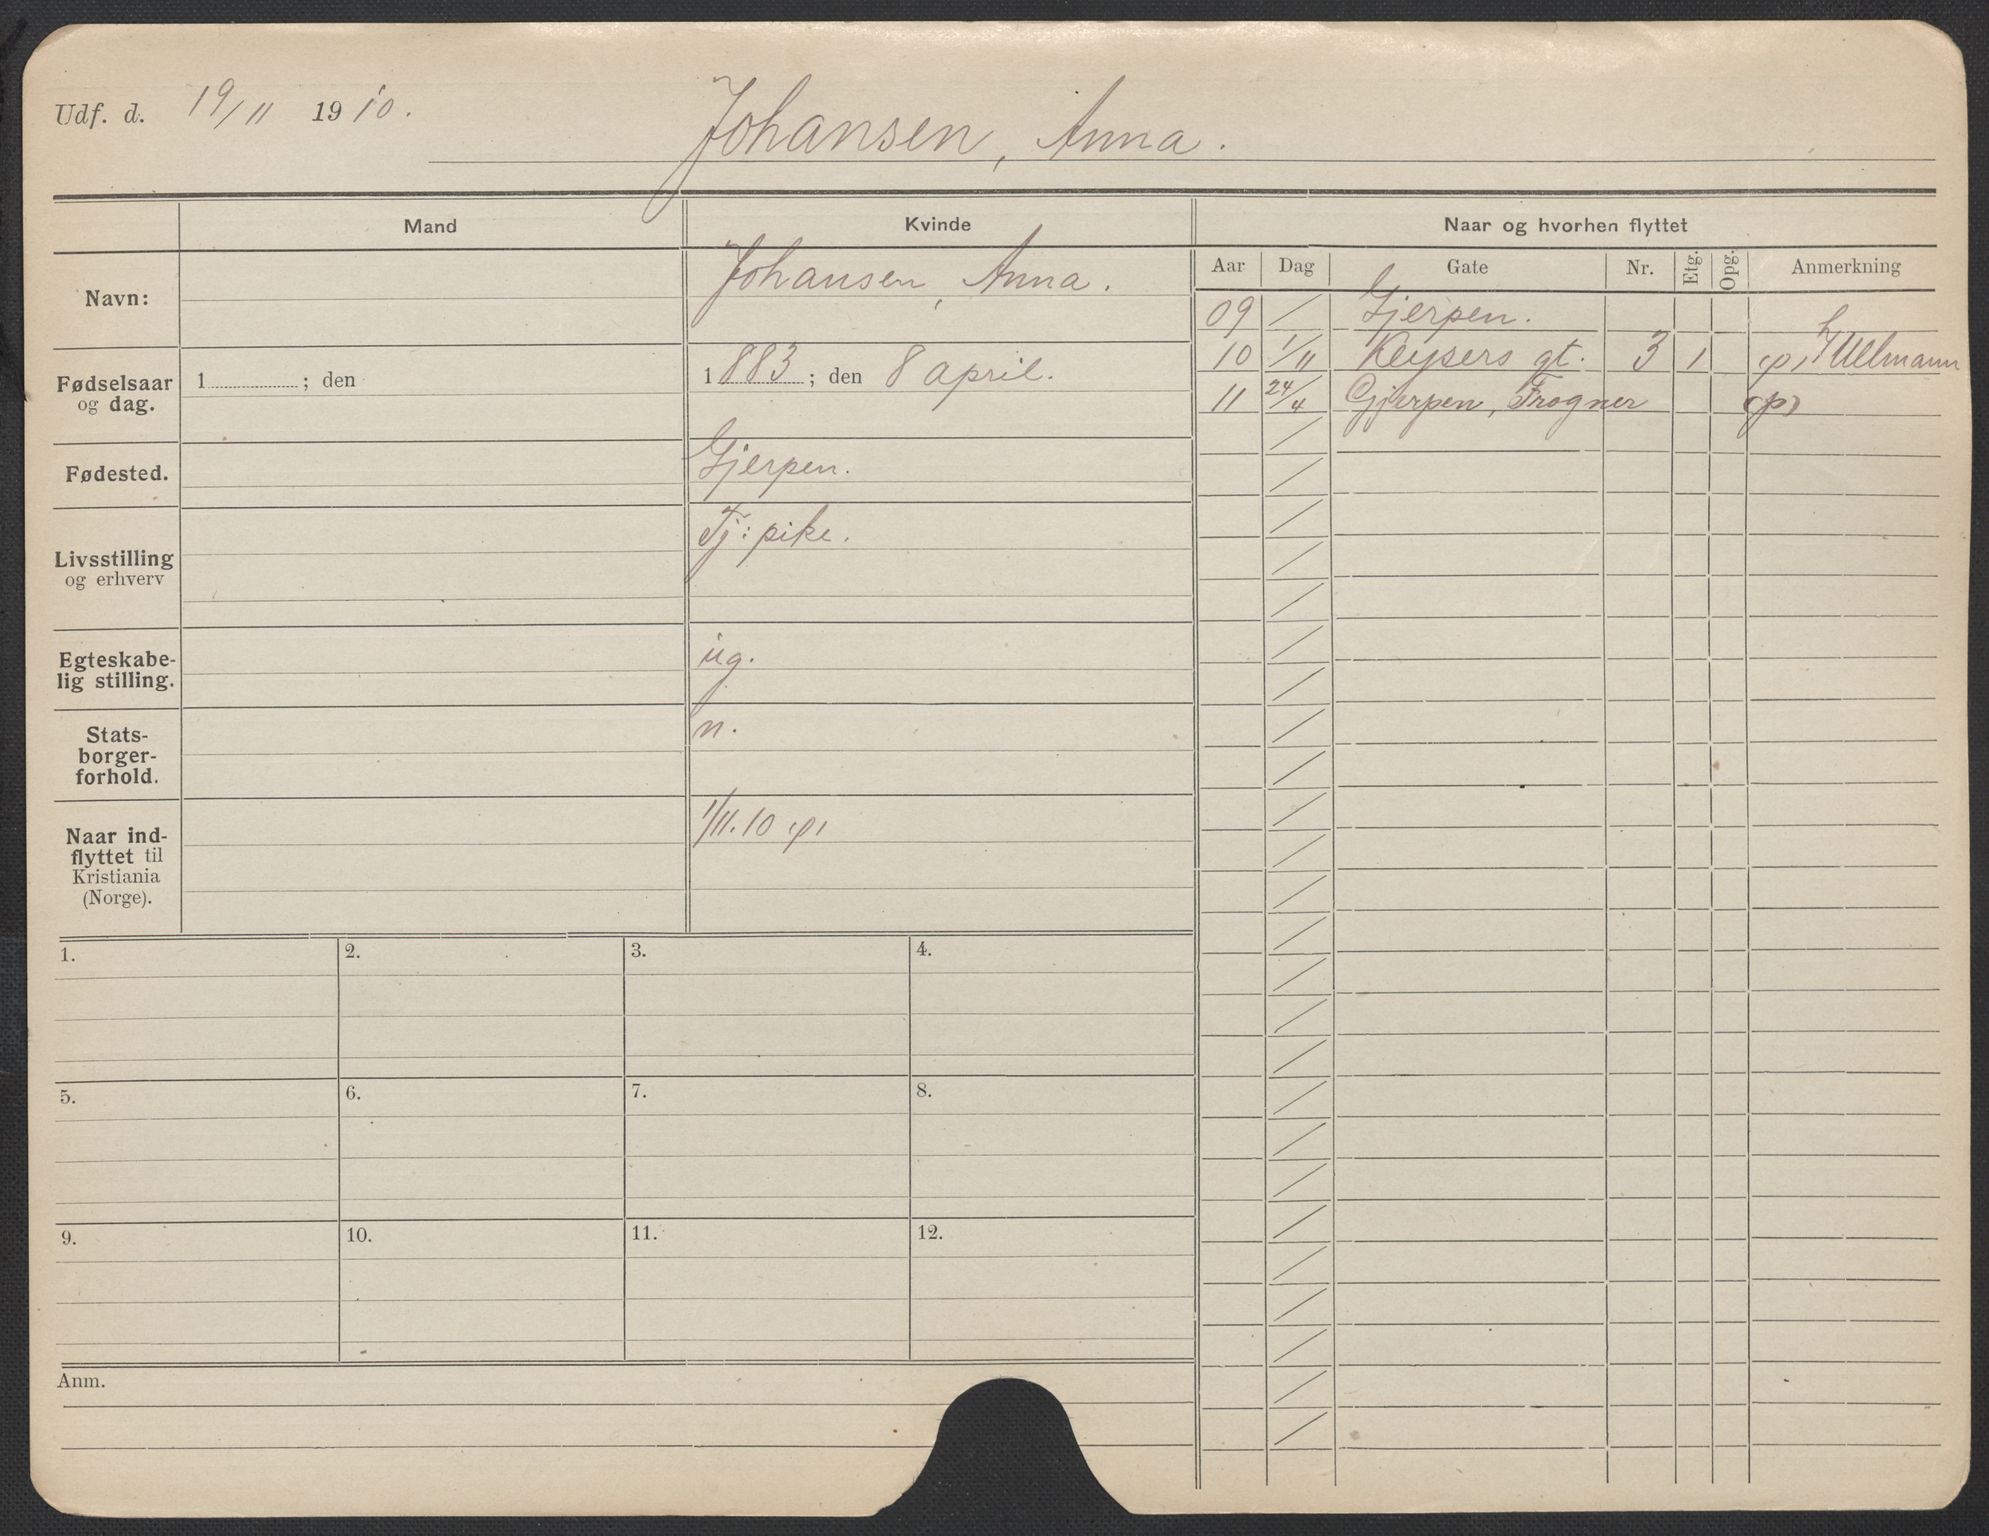 Udf. d. 19/11 1910.
Johansen, Anna.
Mand Kvinde Naar og hvorhen flyttet
Aar Dag Gate Nr. Etg. Opg. Anmerkning
Navn: Johansen, Anna.
09 / Gjerpen.
10 1/11 Keysers gt. 3 1 Ullmann
11 24/4 Gjerpen, Frogner (p)
Fødselsaar og dag.
1 ; den
1883 ; den 8 april.
Fødested. Gjerpen.
Livsstilling og erhverv
Tj: pike.
Egteskabe-
lig stilling.
ug.
Stats-
borger-
forhold.
n.
Naar ind-
flyttet til
Kristiania
(Norge).
1/11.10
1. 2. 3. 4.
5. 6. 7. 8.
9. 10. 11. 12.
Anm.